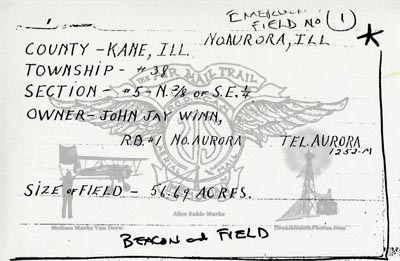 EMERGENCY
FIELD NO 1
NO. AURORA, ILL
COUNTY - KANE, ILL.
TOWNSHIP - #38
THE AIR MAIL TRAIL
SECTION - #5 - N. 3/8 OF S.E. 1/4
OWNER - JOHN JAY WINN,
R.D. #1 NO. AURORA TEL. AURORA
1252-M
SIZE OF FIELD - 56.69 ACRES.
Melissa Marks Van Drew
Allee Eakle Marks
BEACON on FIELD